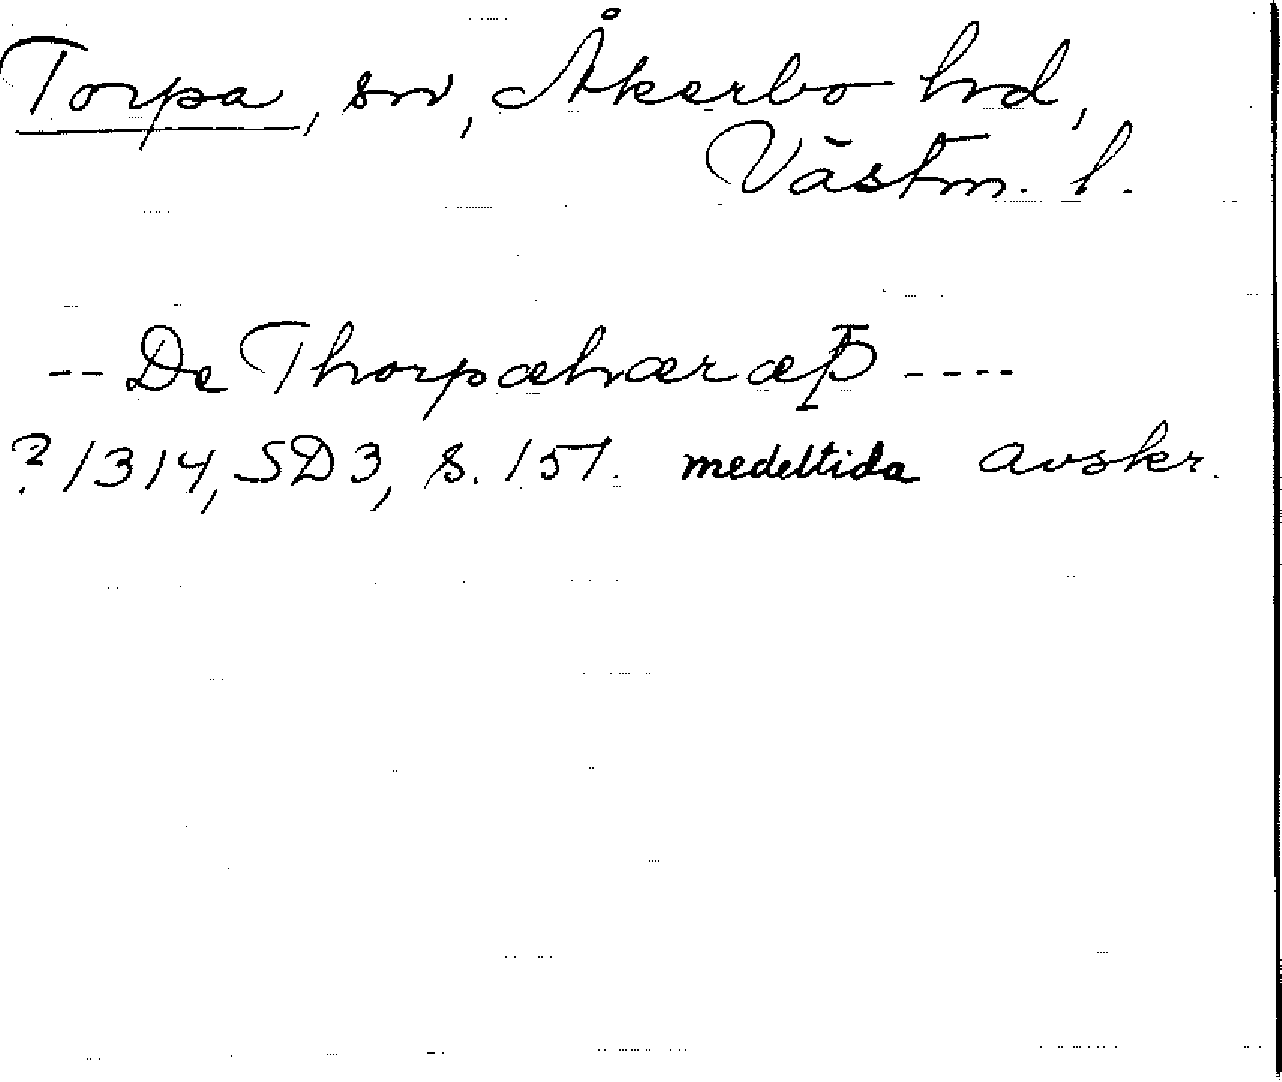 Torpa, sn, Åkerbo hd,
Västm. l.
-- De Thorpæhæræþ ----
? 1314, SD3, s. 151. medeltida avskr.